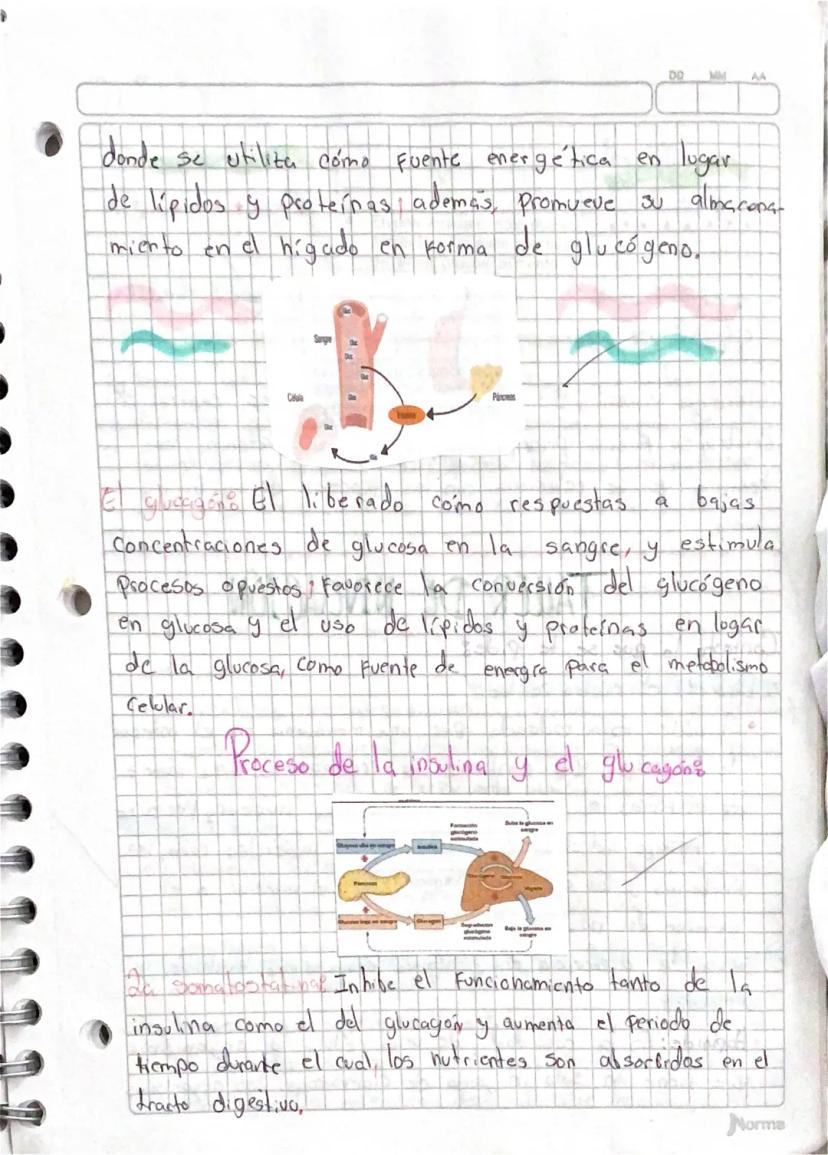 DD MM AA
donde se utilita cómo fuente energética en lugar
de lípidos y proteínas; además, promueve su almacena-
miento en el hígado en forma de glucógeno.
Gluc
Sangre
Gluc
Gluc
Gluc
Célula
Gluc
Páncreas
Insulina
Gluc
El glucagón: El liberado cómo respuestas a bajas
concentraciones de glucosa en la sangre, y estimula
procesos opuestos; favorece la conversión del glucógeno
en glucosa y el uso de lípidos y proteínas en logar
de la glucosa, como fuente de energía para el metabolismo
celular.
Proceso de la insulina y el glucagón:
Formación glucógeno estimulada
Sube la glucosa en sangre
Glucosa alta en sangre
Insulina
Páncreas
Hígado
Glucosa baja en sangre
Glucagon
Degradación glucógeno estimulada
Baja la glucosa en sangre
La somatostatina: Inhibe el funcionamiento tanto de la
insulina como el del glucagón y aumenta el periodo de
tiempo durante el cual, los nutrientes son absorbidas en el
tracto digestivo.
Norma